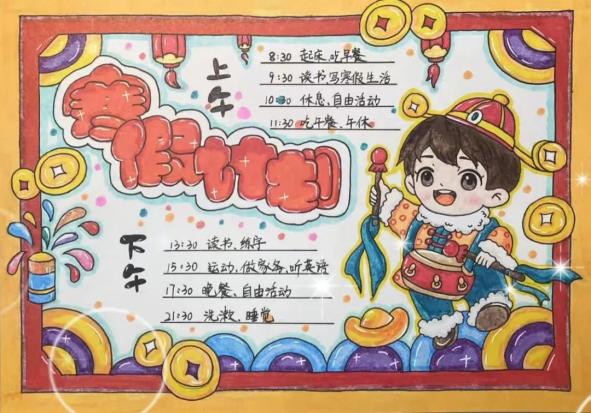 寒假计划
上午
8:30 起床、吃早餐
9:30 读书、写寒假生活
10:30 休息、自由活动
11:30 吃午餐、午休
下午
13:30 读书、练字
15:30 运动、做家务、听英语
17:30 晚餐、自由活动
21:30 洗漱、睡觉